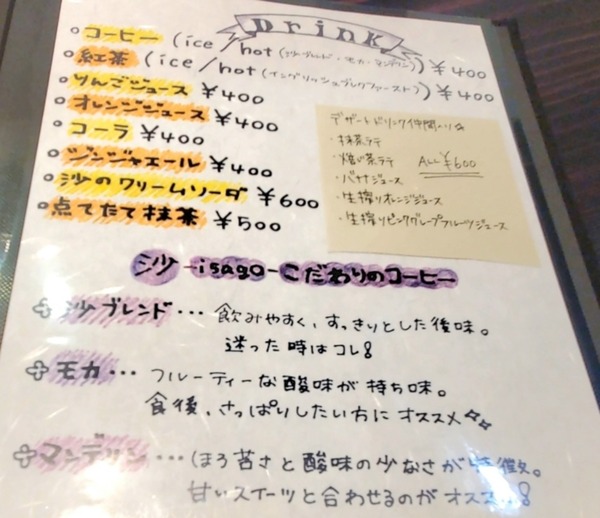 Drink
コーヒー (ice/hot (沙ブレンド・モカ・マンデリン)) ¥400
紅茶 (ice/hot (イングリッシュブレックファースト)) ¥400
りんごジュース ¥400
オレンジジュース ¥400
コーラ ¥400
ジンジャエール ¥400
沙のクリームソーダ ¥600
点てたて抹茶 ¥500
デザートドリンク仲間入り☆
・抹茶ラテ
・焙じ茶ラテ ALL ¥600
・バナナジュース
・生搾りオレンジジュース
・生搾りピンクグレープフルーツジュース
沙-isago-こだわりのコーヒー
沙ブレンド・・・飲みやすく、すっきりとした後味。
迷った時はコレ!
モカ・・・フルーティーな酸味が持ち味。
食後、さっぱりしたい方にオススメ
マンデリン・・・ほろ苦さと酸味の少なさが特徴。
甘いスイーツと合わせるのがオススメ!